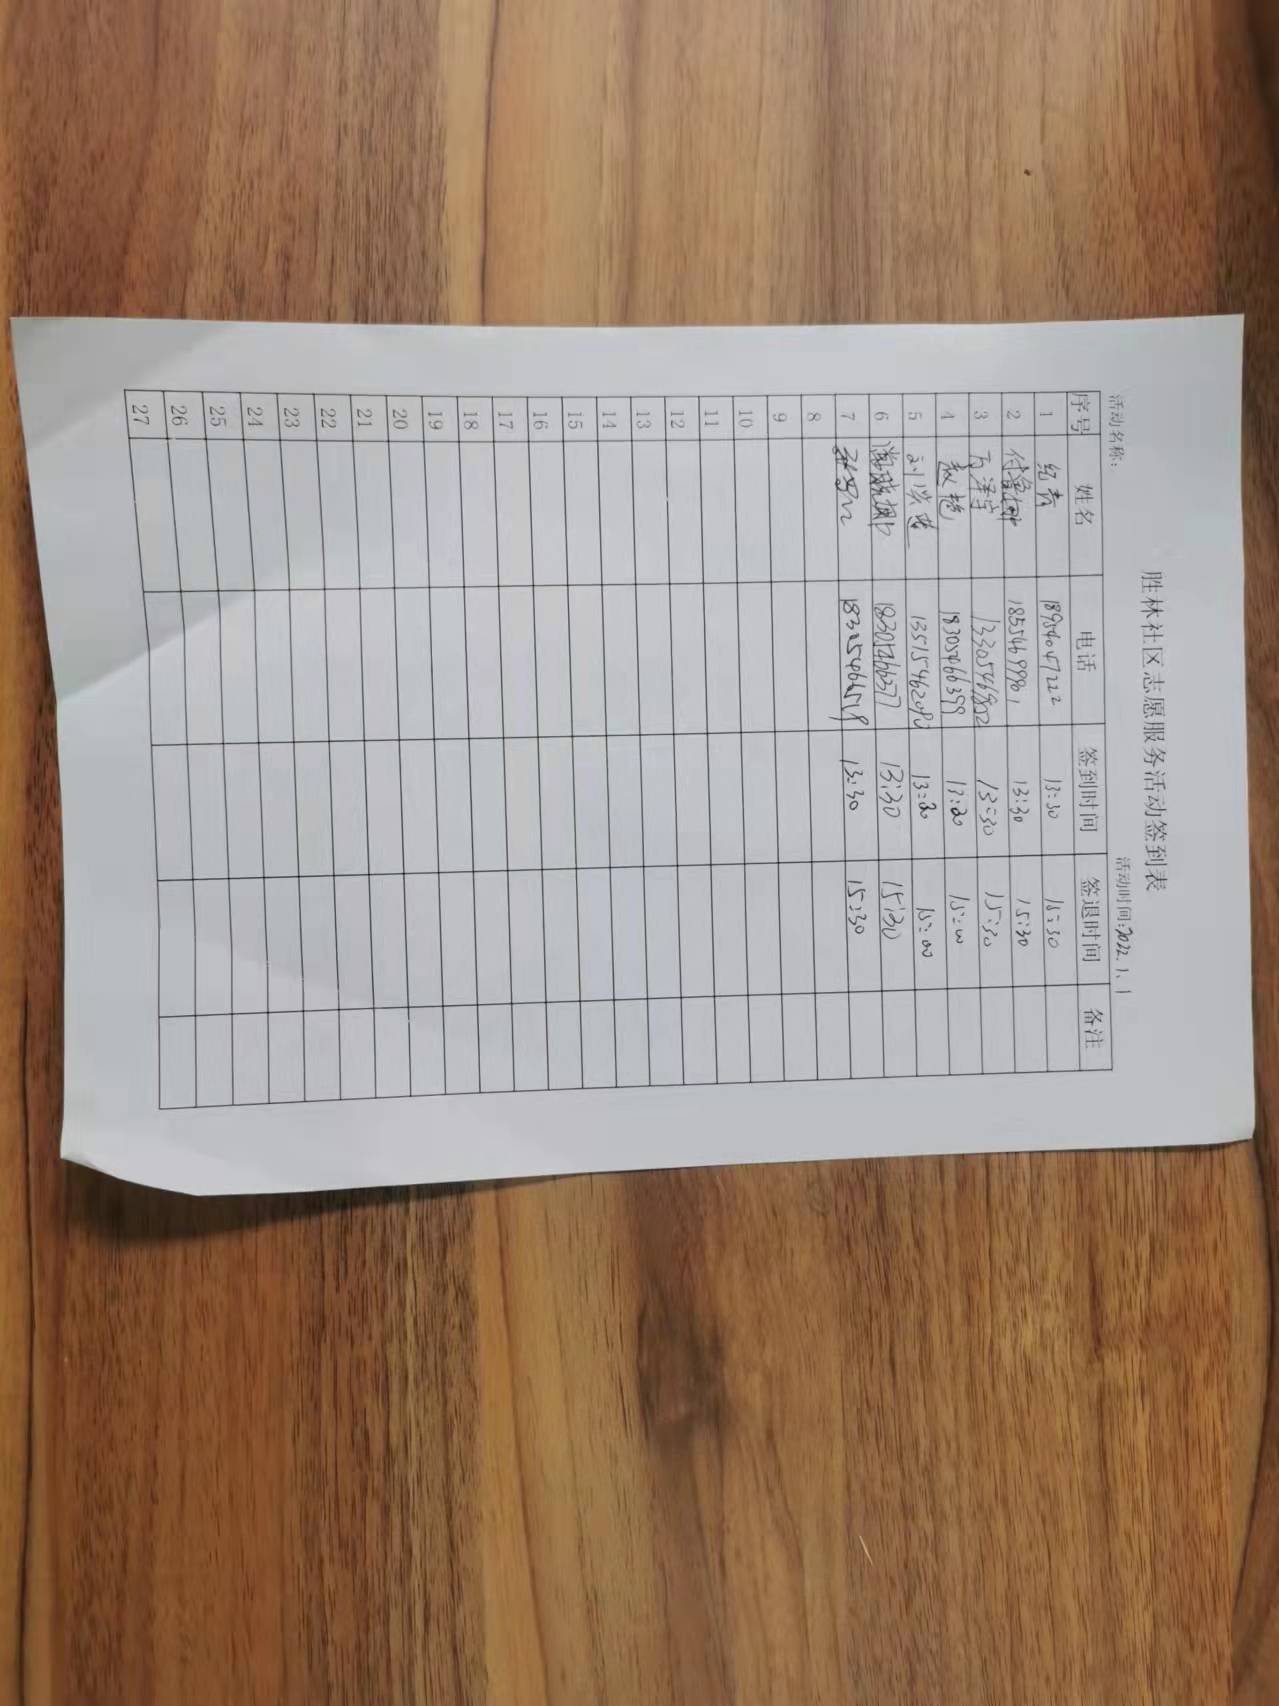 胜林社区志愿服务活动签到表
活动名称： 活动时间：2022.1.1
序号 姓名 电话 签到时间 签退时间 备注
1 纪青 18954047222 13:30 15:30
2 18554699961 13:30 15:30
3 13305469802 13:30 15:30
4 赵艳 18305466399 13:20 15:00
5 13515462080 13:20 15:00
6 13:30 15:30
7 18305466518 13:30 15:30
8
9
10
11
12
13
14
15
16
17
18
19
20
21
22
23
24
25
26
27